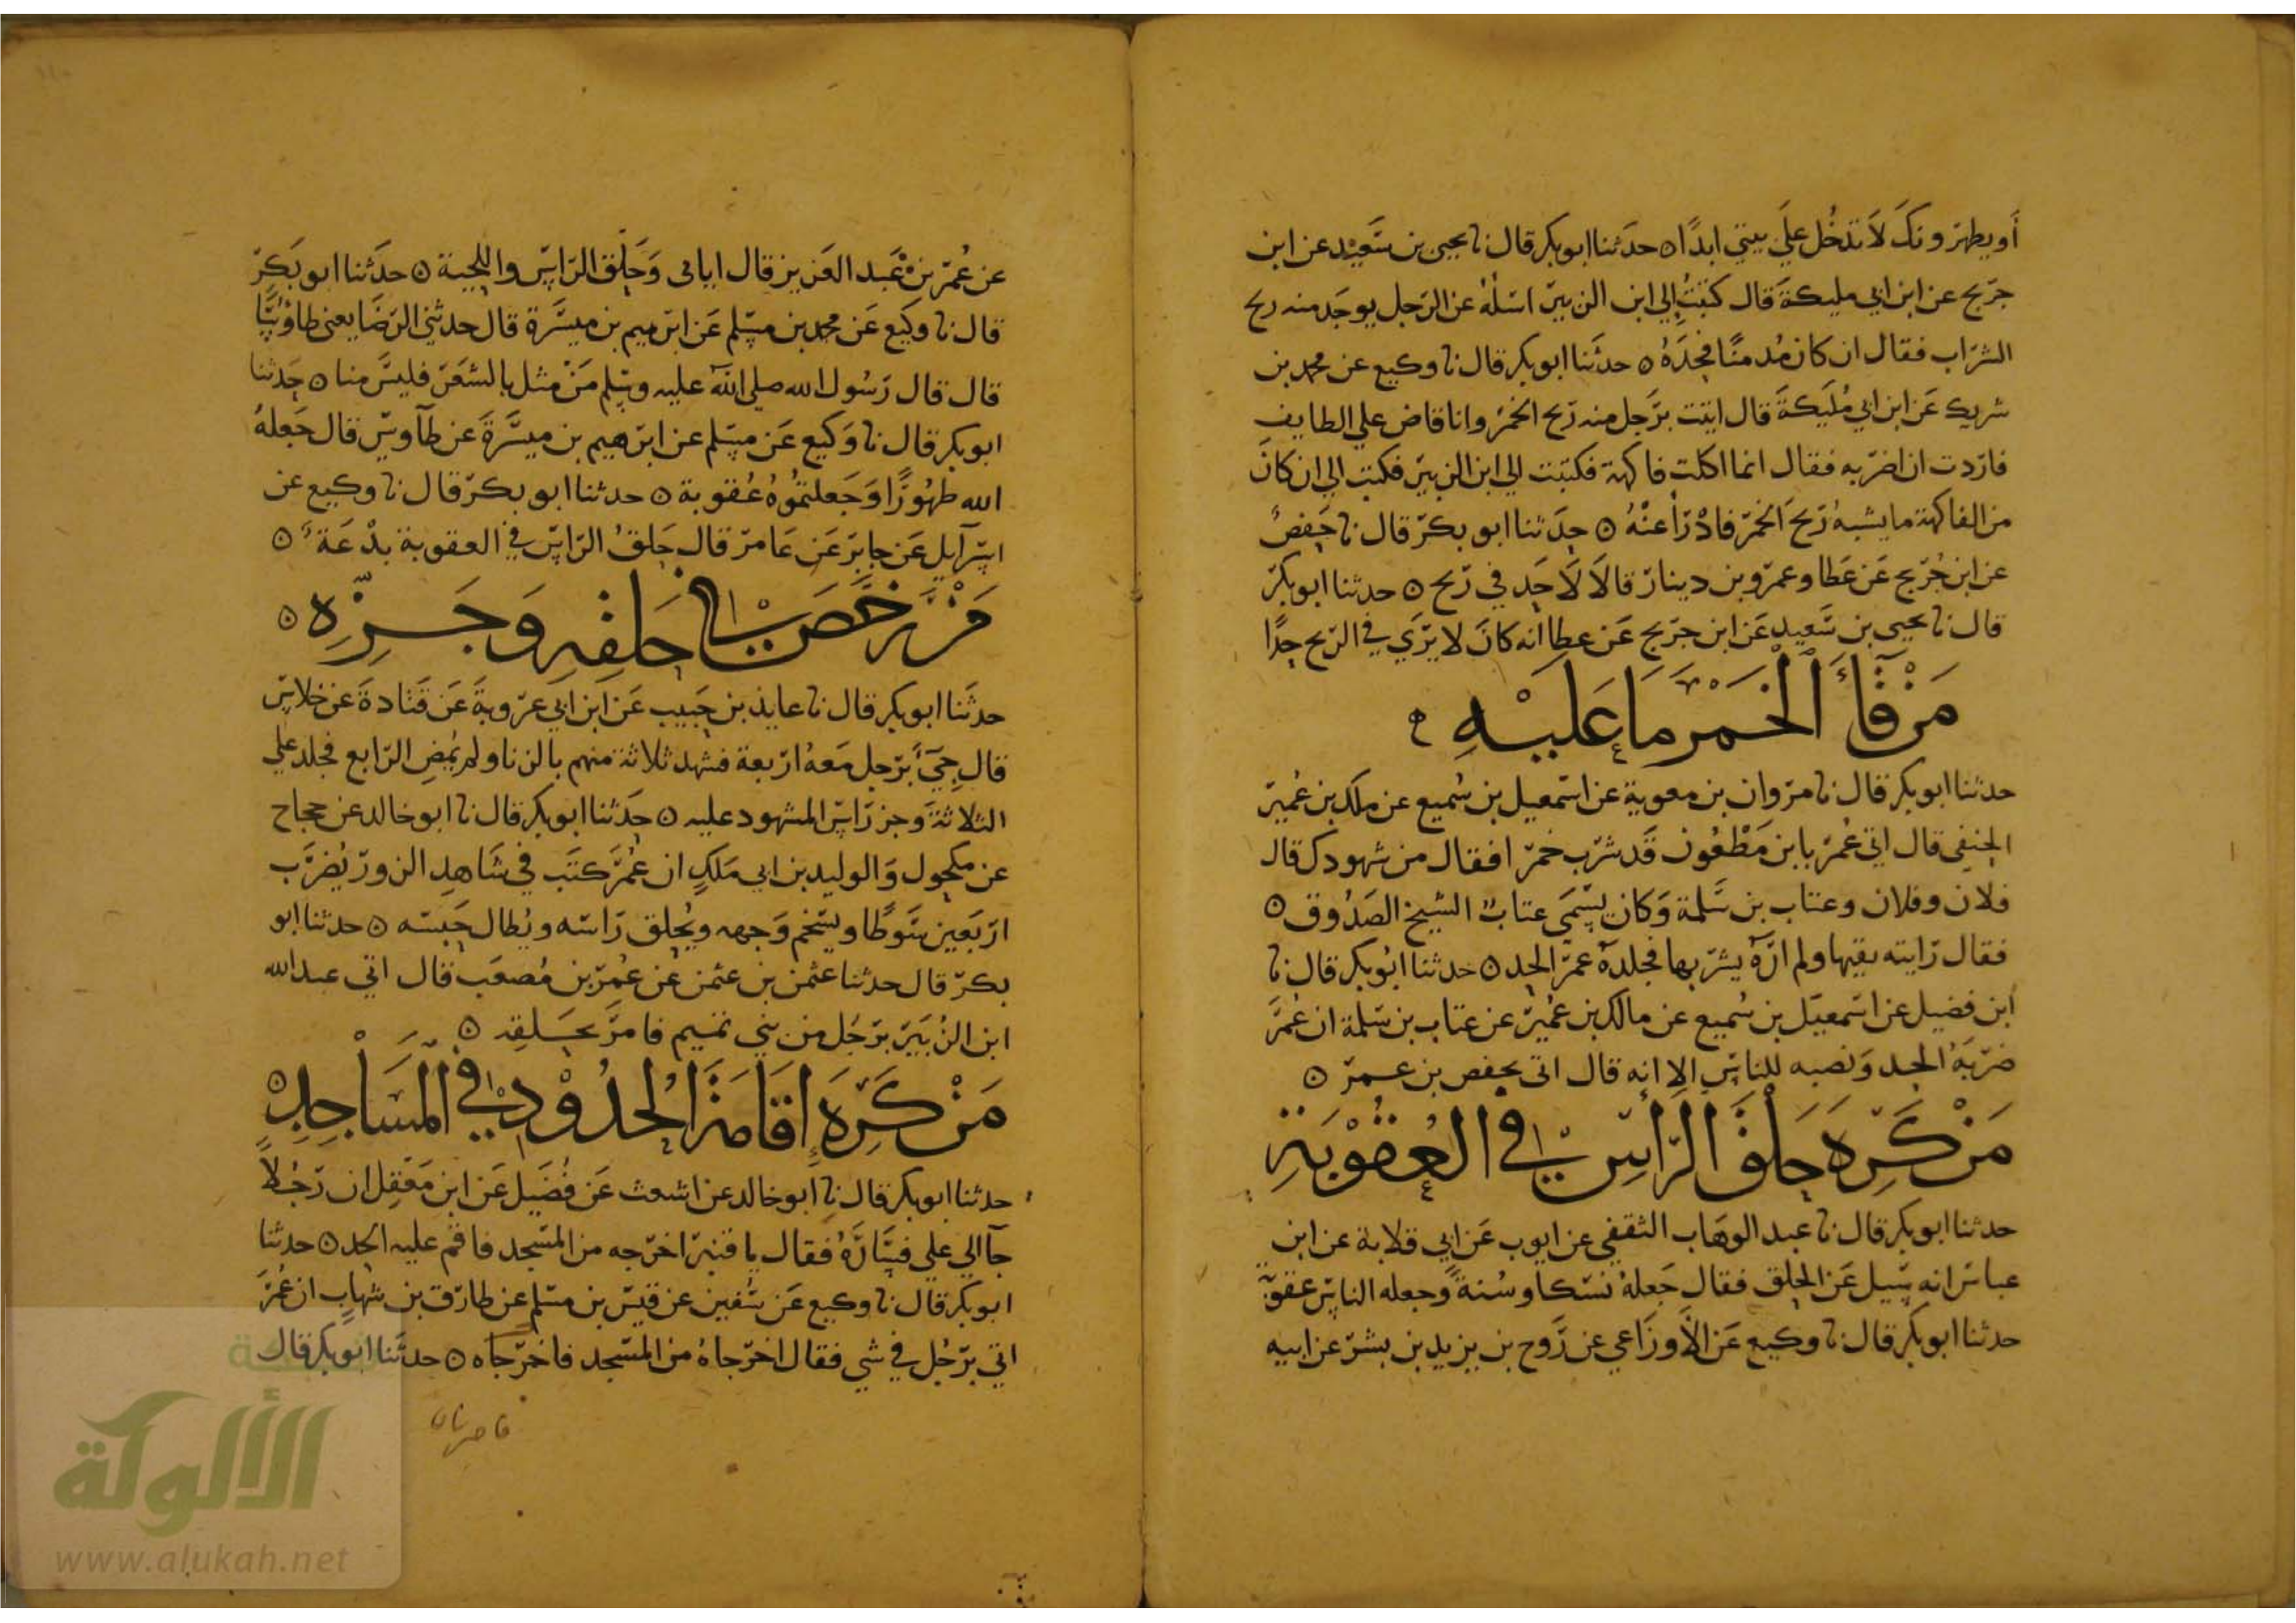 أو يطهر ونك لا تدخل علي بيتي ابدًا ه حدثنا ابو بكر قال نا يحيى بن سعيد عن ابن
جريج عن ابن ابي مليكة قال كتبت إلي ابن الزبير اسئله عن الرجل يوجد منه ريح
الشراب فقال ان كان مُدمنًا فحده ه حدثنا ابو بكر قال نا وكيع عن محمد بن
شريك عن ابن ابي مُليكة قال اتيت برجل منه ريح الخمر وانا قاض علي الطايف
فاردت ان اضربه فقال انما اكلت فاكهة فكتبت الي ابن الزبير فكتب الي ان كان
من الفاكهة ما يشبه ريح الخمر فادرأ عنه ه حدثنا ابو بكر قال نا حفص
عن ابن جُريج عن عطا وعمرو بن دينار قالا لا حد في ريح ه حدثنا ابو بكر
قال نا يحيى بن سعيد عن ابن جريج عن عطا انه كان لا يري في الريح حدًا
من قآء الخمر ما عليه ه
حدثنا ابو بكر قال نا مروان بن معوية عن اسمعيل بن سُميع عن ملك بن عُمير
الحنفي قال اتي عُمر بابن مظعون قد شرب خمرا فقال من شهودك قال
فلان وفلان وعتاب بن سلمة وكان يسمى عتاب الشيخ الصدوق ه
فقال رايته يقيها ولم اره يشربها فجلده عمر الحد ه حدثنا ابو بكر قال نا
ابن فضيل عن اسمعيل بن سُميع عن مالك بن عُمير عن عتاب بن سلمة ان عُمر
ضربه الحد ونصبه للناس الا انه قال اتى بحفص بن عمر ه
من كره حلق الراس في العقوبة
حدثنا ابو بكر قال نا عبد الوهاب الثقفي عن ايوب عن ابي قلابة عن ابن
عباس انه سيل عن الحلق فقال جعله نسكا وسُنة وجعله الناس عقوبة
حدثنا ابو بكر قال نا وكيع عن الأوزاعي عن روح بن يزيد بن بشر عن ابيه
عن عُمر بن عبد العزيز قال اياى وحلق الراس واللحية ه حدثنا ابو بكر
قال نا وكيع عن محمد بن مسلم عن ابرهيم بن ميسرة قال حدثني الرضا يعني طاوُسًا
قال قال رسول الله صلي الله عليه وسلم من مثل بالشعر فليس منا ه حدثنا
ابو بكر قال نا وكيع عن مسلم عن ابرهيم بن ميسرة عن طآوس قال جعله
الله طهورًا وجعلتموه عقوبة ه حدثنا ابو بكر قال نا وكيع عن
اسرآيل عن جابر عن عامر قال حلق الراس في العقوبة بدعة ه
من رخص في حلقه وجزه ه
حدثنا ابو بكر قال نا عايذ بن حبيب عن ابن ابي عروبة عن قتادة عن خلاس
قال جيء برجل معه اربعة فشهد ثلاثة منهم بالزنا ولم يمض الرابع فجلد علي
الثلاثة وجز راس المشهود عليه ه حدثنا ابو بكر قال نا ابو خالد عن حجاح
عن مكحول والوليد بن ابي ملك ان عُمر كتب في شاهد الزور يُضرب
اربعين سوطًا ويسخم وجهه ويُحلق راسه ويُطال حبسه ه حدثنا ابو
بكر قال حدثنا عثمن بن عثمن عن عُمر بن مُصعب قال اتي عبد الله
ابن الزُبير برجُل من بني تميم فامر بحلقه ه
من كره إقامة الحدود في المساجد ه
حدثنا ابو بكر قال نا ابو خالد عن اشعث عن فُضيل عن ابن معقل ان رجُلاً
جآ الي علي فسآره فقال يا قنبر اخرجه من المسجد فاقم عليه الحد ه حدثنا
ابو بكر قال نا وكيع عن سُفين عن قيس بن مسلم عن طارق بن شهاب ان عُمر
اتي برجُل في شي فقال اخرجاه من المسجد فاخرجاه ه حدثنا ابو بكر قال
الألوكة
www.alukah.net